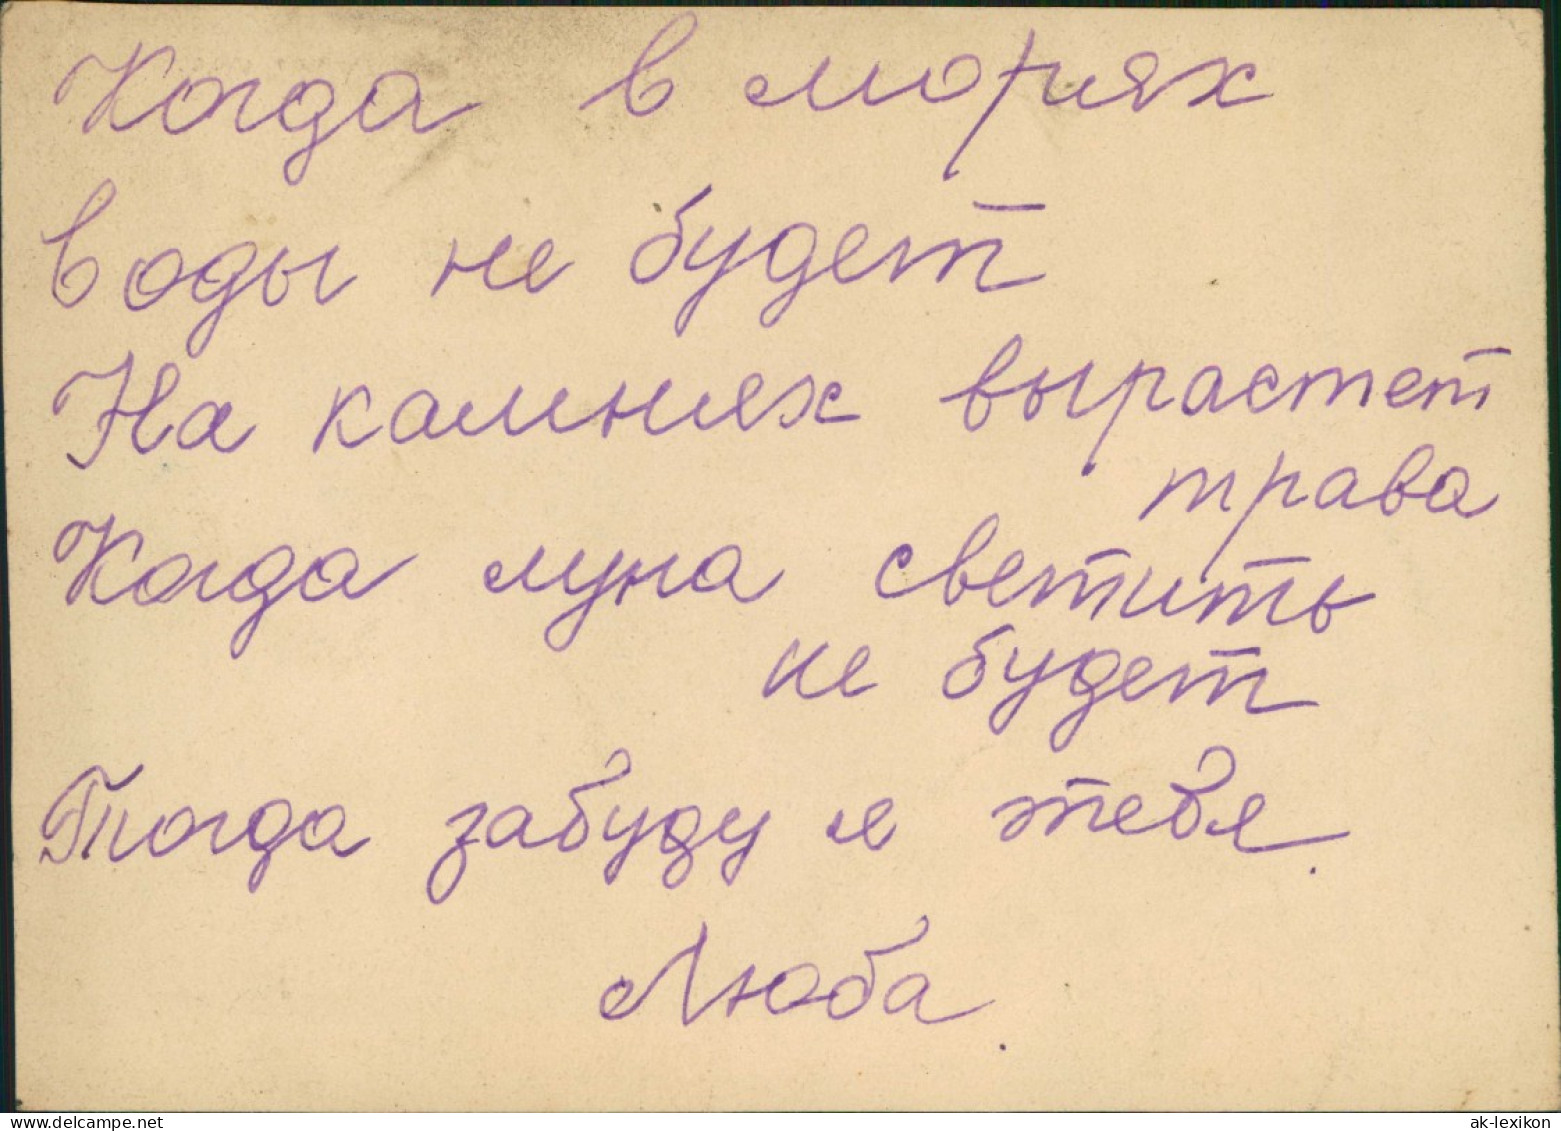 Когда в морях
воды не будет
На камнях вырастет
трава
Когда луна светить
не будет
Тогда забуду я тебя.
Люба.
www.delcampe.net
ak-lexikon